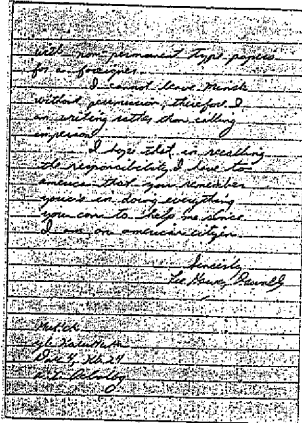 with non-permanent type papers
for a foreigner.
I cannot leave Minsk
without permission, therefore I
am writing rather than calling
in person.
I hope that in recalling
the responsibility I have to
america that you remember
your's in doing everything
you can to help me since
I am an american citizen.
Sincerly
Lee Harvey Oswald
Minsk